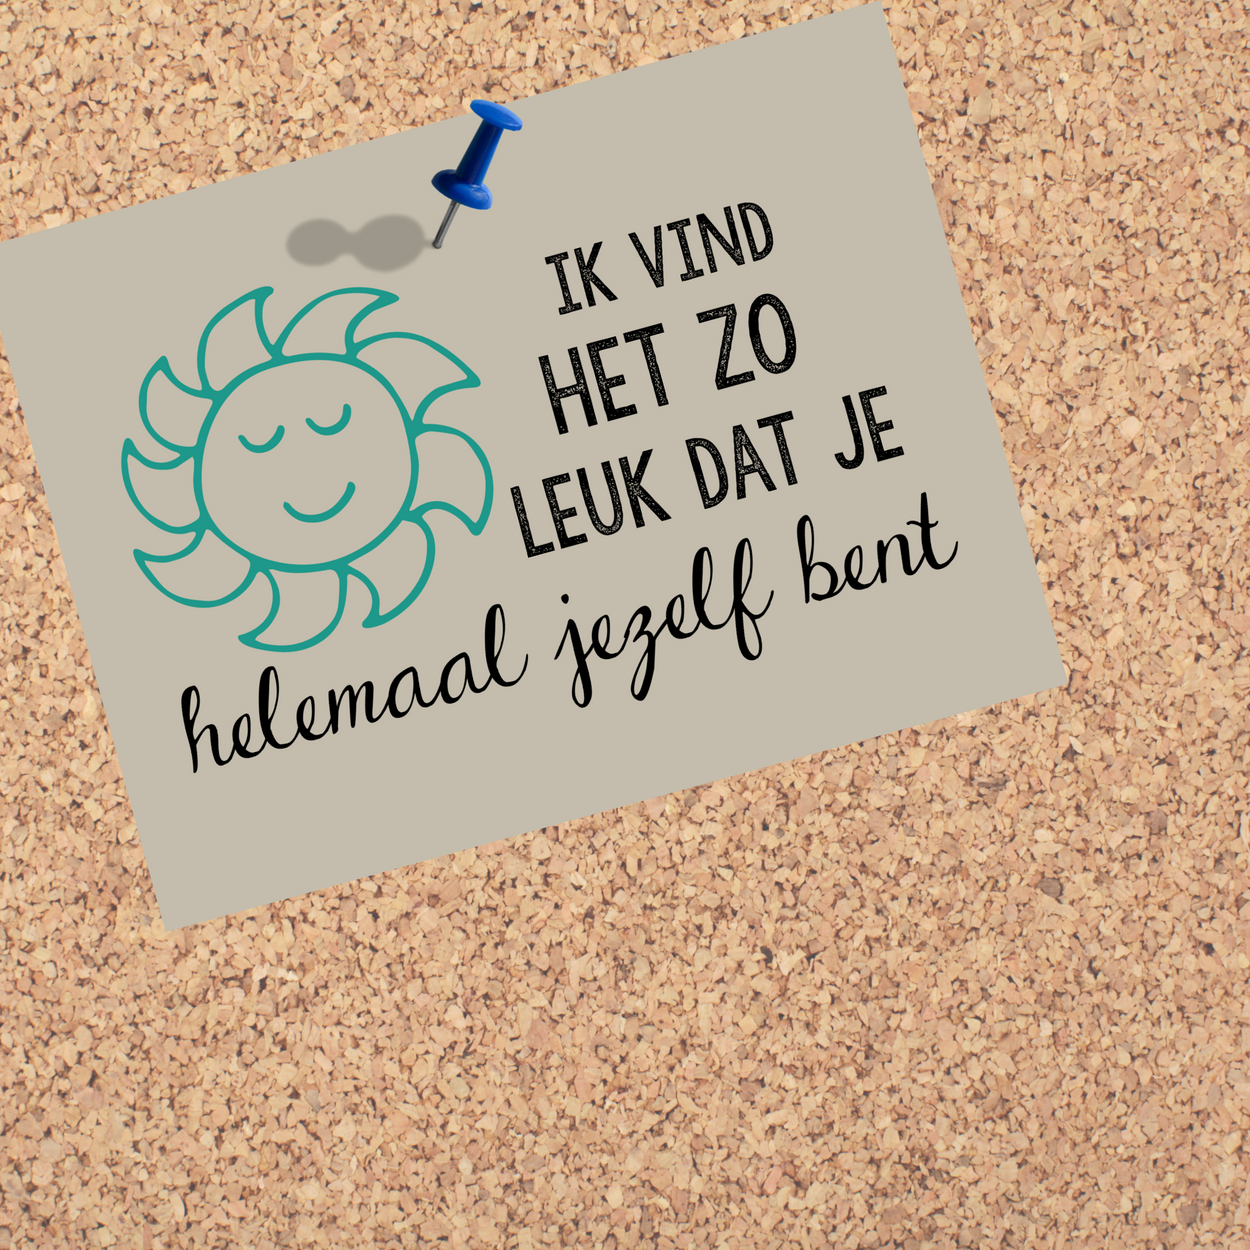 IK VIND
HET ZO
LEUK DAT JE
helemaal jezelf bent